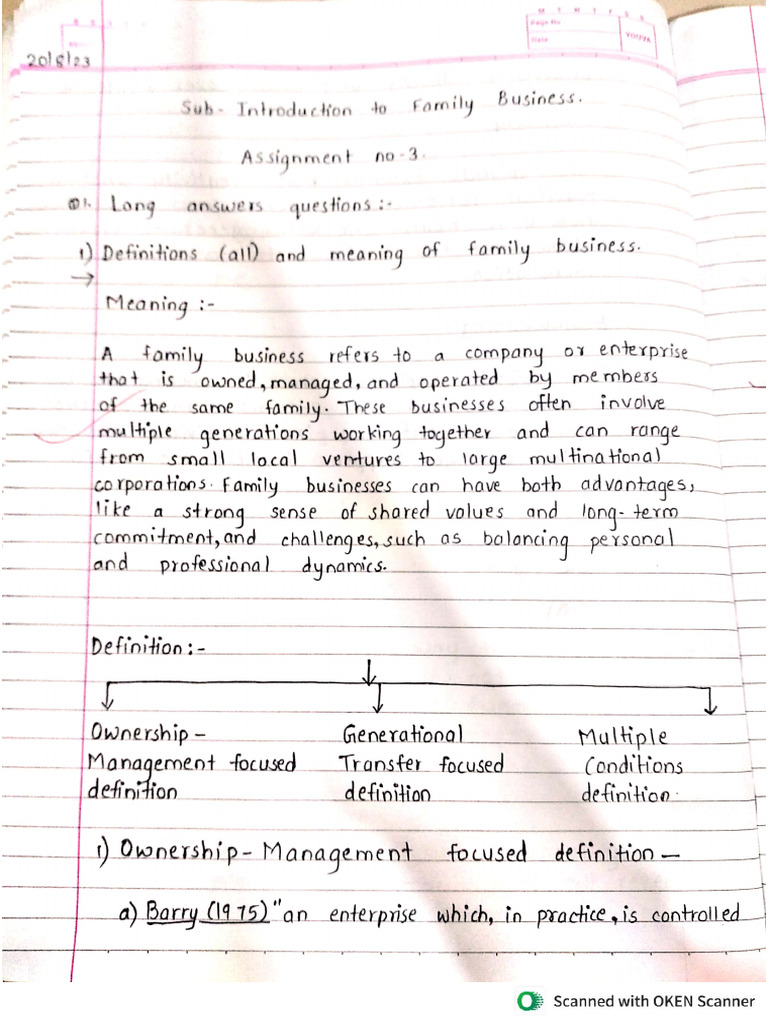 M T W T F S S
Page No
Date
YOUVA
20/8/23
Sub- Introduction to Family Business.
Assignment no-3.
Q1. Long answers questions:-
1) Definitions (all) and meaning of family business.
→
Meaning :-
A family business refers to a company or enterprise
that is owned, managed, and operated by members
of the same family. These businesses often involve
multiple generations working together and can range
from small local ventures to large multinational
corporations. Family businesses can have both advantages,
like a strong sense of shared values and long-term
commitment, and challenges, such as balancing personal
and professional dynamics.
Definition:-
Ownership - Generational Multiple
Management focused Transfer focused Conditions
definition definition definition.
1) Ownership - Management focused definition —
a) Barry (1975) "an enterprise which, in practice, is controlled
Scanned with OKEN Scanner